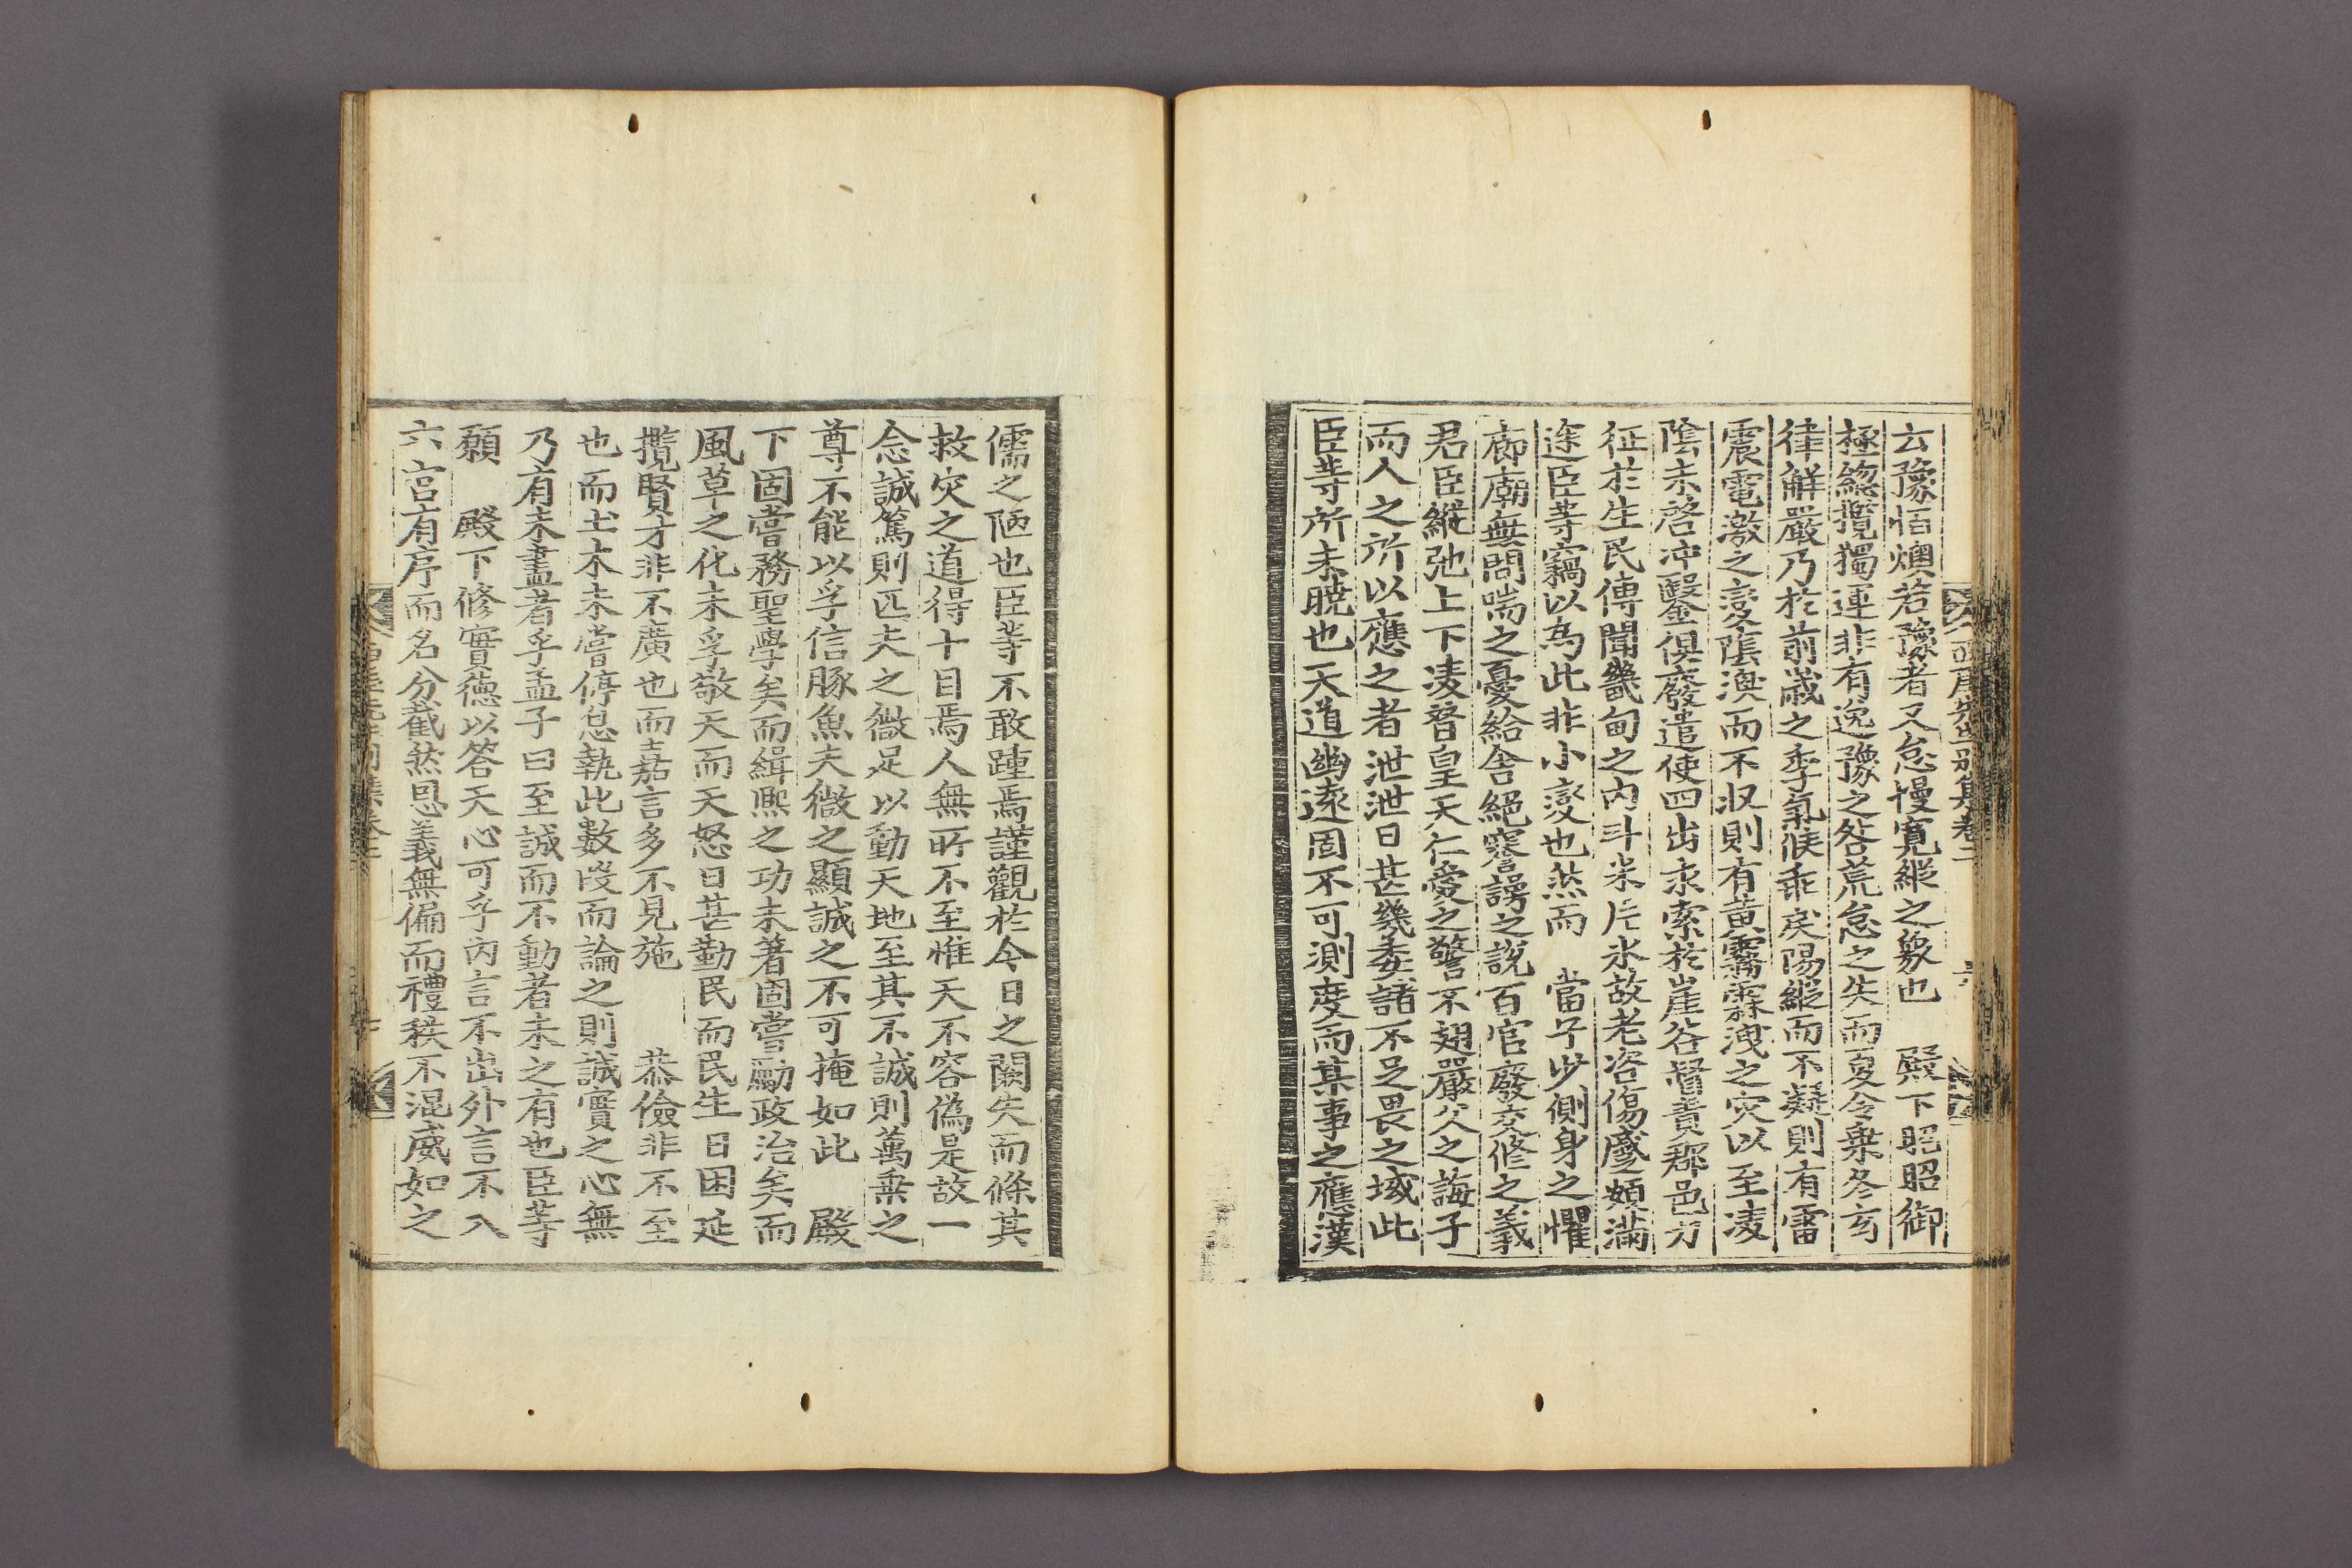 西厓先生別集卷二
云豫恒燠若豫者又怠慢寬縱之象也 殿下昭昭御
極緫攬獨運非有逸豫之咎荒怠之失而夏令乗冬玄
律觧嚴乃於前歳之季氣候乖戾陽縱而不凝則有雷
震電激之變隂渙而不収則有黄霧霖洩之灾以至凌
隂未啓冲鑿俱廢遣使四出求索於崖谷督責郡邑方
征於生民傳聞畿甸之内斗米片氷故老咨傷感頻滿
途臣等竊以為此非小變也然而 當宁少側身之懼
廊廟無問喘之憂給舎絶謇諤之説百官廢交修之義
君臣縱弛上下凌替皇天仁愛之警不翅嚴父之誨子
而人之所以應之者泄泄日甚幾委諸不足畏之域此
臣等所未曉也天道幽遠固不可測度而某事之應漢
儒之陋也臣等不敢踵焉謹觀於今日之闕失而條其
救灾之道得十目焉人無所不至惟天不容偽是故一
念誠篤則匹夫之微足以動天地至其不誠則萬乗之
尊不能以孚信豚魚夫微之顯誠之不可掩如此 殿
下固嘗務聖學矣而緝熙之功未著固嘗勵政治矣而
風草之化未孚敬天而天怒日甚勤民而民生日困延
攬賢才非不廣也而嘉言多不見施 恭儉非不至
也而土木未嘗停息執此數段而論之則誠實之心無
乃有未盡者乎孟子曰至誠而不動者未之有也臣等
願 殿下修實徳以答天心可乎内言不出外言不入
六宫有序而名分截然恩義無偏而禮秩不混威如之